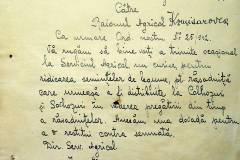 Către
Raionul Agricol Komisarovca
Ca urmare Ord. nostru Nº 25.912.
Vă rugăm să bine voiți a trimite ocazional
la Serviciul Agricol un curier, pentru
ridicarea semințelor de legume, pt. răsadniță
care urmează a fi distribuite la Colhozuri
și Solhozuri în vederea pregătirii din timp
a răsadnițelor. Anexăm una dovadă pentru
a o restitui contra semnată.
Dir. Serv. Agricol